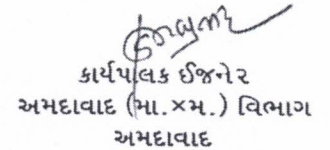 કાર્યપાલક ઈજનેર
અમદાવાદ (મા.×મ.) વિભાગ
અમદાવાદ